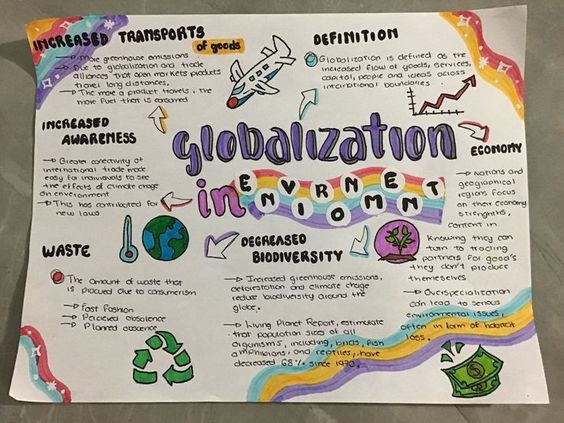 INCREASED TRANSPORTS
of goods
→ More greenhouse emissions
→ Due to globalization and trade
alliances that open markets products
travel long distances,
→ The more a product travels, the
more fuel that is consumed
DEFINITION
Globalization is defined as the
increased flow of goods, services,
capital, people and ideas across
international boundaries.
INCREASED
AWARENESS
→ Greater conectivity of
international trade made
easy for individuals to see
the effects of climate change
on environment
→ This has contributed for
new laws
globalization
in ENVIRONMENT
ECONOMY
→ Nations and
geographical
regions focus
on their economy
strenghts,
content in
Knowing they can
turn to trading
partners for goods
they don't produce
themselves
→ Overspecialization
can lead to serious
environmental issues,
often in form of habitat
loss.
WASTE
The amount of waste that
is placed due to consumerism
→ Fast Fashion
→ Perceived obsolence
→ Planned obsolence
DECREASED
BIODIVERSITY
→ Increased greenhouse emissions,
deforestation and climate change
reduce biodiversity around the
globe.
→ Living Planet Report, estimate
that population sizes of all
organisms, including, birds, fish
amphibians, and reptiles, have
decreased 68% since 1970.
$